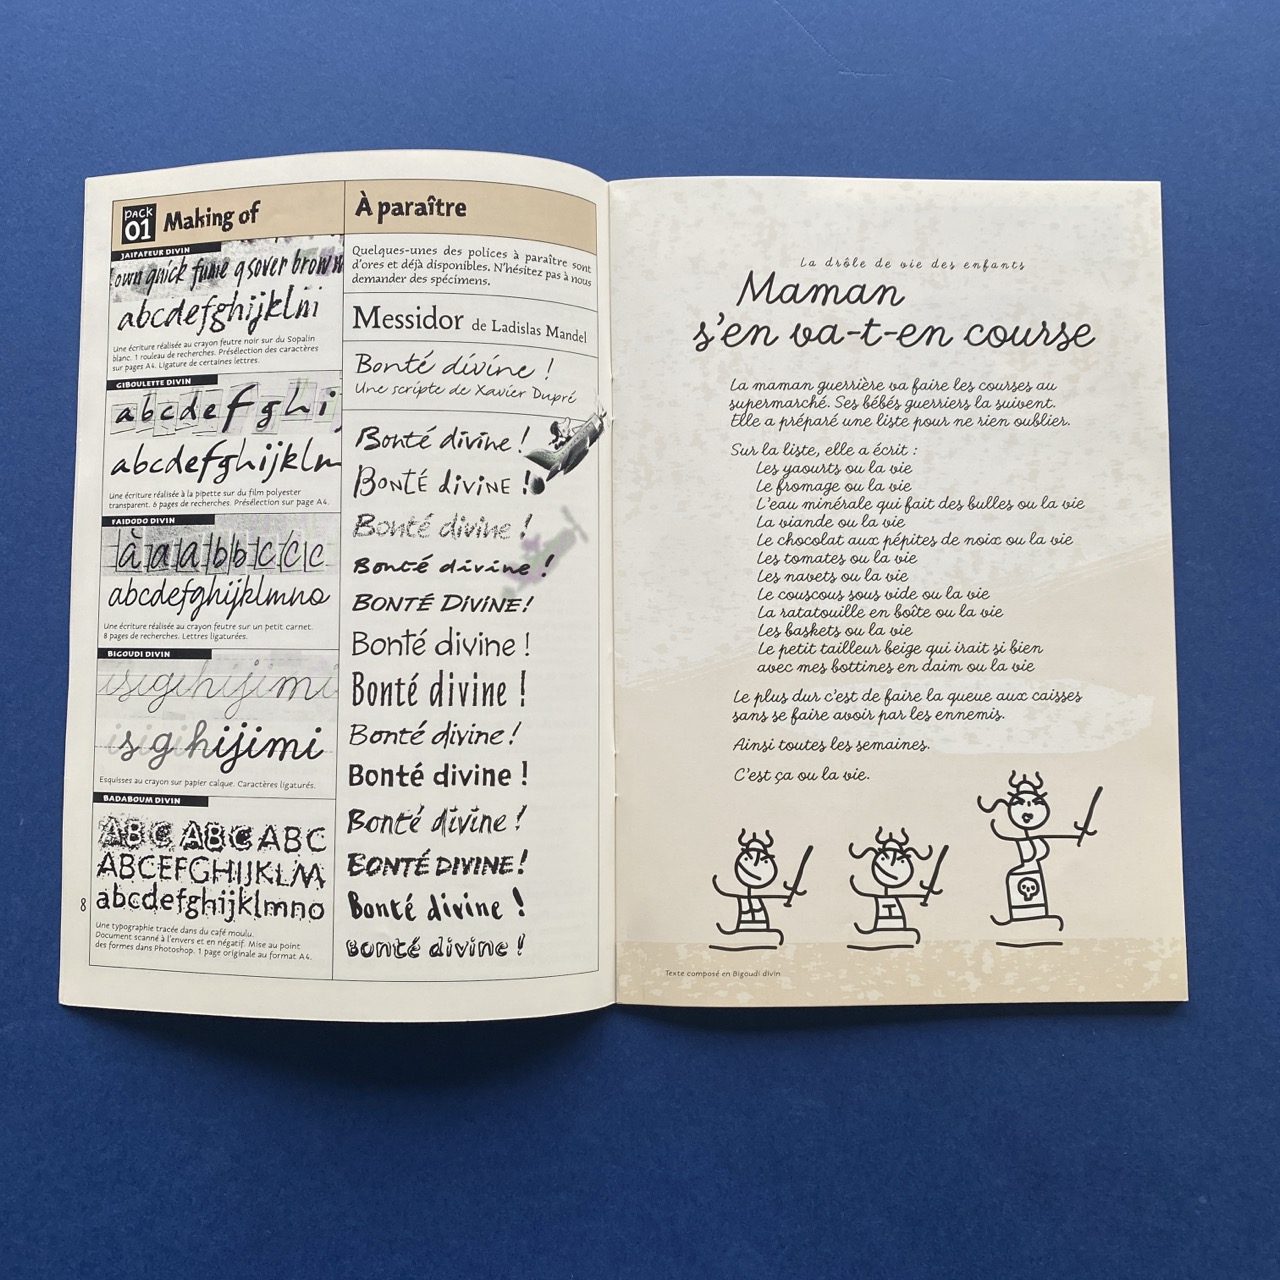 PACK
01
Making of
JAIPAPEUR DIVIN
own quick fume qsover brown
abcdefghijklm
Une écriture réalisée au crayon feutre noir sur du Sopalin
blanc. 1 rouleau de recherches. Présélection des caractères
sur pages A4. Ligature de certaines lettres.
GIBOULETTE DIVIN
abcdefghi
abcdefghijklm
Une écriture réalisée à la pipette sur du film polyester
transparent. 6 pages de recherches. Présélection sur page A4.
FAIDODO DIVIN
à a a b b c c c
abcdefghijklmno
Une écriture réalisée au crayon feutre sur un petit carnet.
8 pages de recherches. Lettres ligaturées.
BIGOUDI DIVIN
isigihijimi
isigihijimi
Esquisses au crayon sur papier calque. Caractères ligaturés.
BADABOUM DIVIN
ABC ABC ABC
ABCEFGHIJKLM
abcdefghijklmno
Une typographie tracée dans du café moulu.
Document scanné à l'envers et en négatif. Mise au point
des formes dans Photoshop. 1 page originale au format A4.
8
À paraître
Quelques-unes des polices à paraître sont
d'ores et déjà disponibles. N'hésitez pas à nous
demander des spécimens.
Messidor de Ladislas Mandel
Bonté divine !
Une scripte de Xavier Dupré
Bonté divine !
Bonté divine !
Bonté divine !
Bonté divine !
BONTÉ DIVINE !
Bonté divine !
Bonté divine !
Bonté divine !
Bonté divine !
Bonté divine !
BONTÉ DIVINE !
Bonté divine !
Bonté divine !
La drôle de vie des enfants
Maman
s'en va-t-en course
La maman guerrière va faire les courses au
supermarché. Ses bébés guerriers la suivent.
Elle a préparé une liste pour ne rien oublier.
Sur la liste, elle a écrit :
Les yaourts ou la vie
Le fromage ou la vie
L'eau minérale qui fait des bulles ou la vie
La viande ou la vie
Le chocolat aux pépites de noix ou la vie
Les tomates ou la vie
Les navets ou la vie
Le couscous sous vide ou la vie
La ratatouille en boîte ou la vie
Les baskets ou la vie
Le petit tailleur beige qui irait si bien
avec mes bottines en daim ou la vie
Le plus dur c'est de faire la queue aux caisses
sans se faire avoir par les ennemis.
Ainsi toutes les semaines.
C'est ça ou la vie.
Texte composé en Bigoudi divin